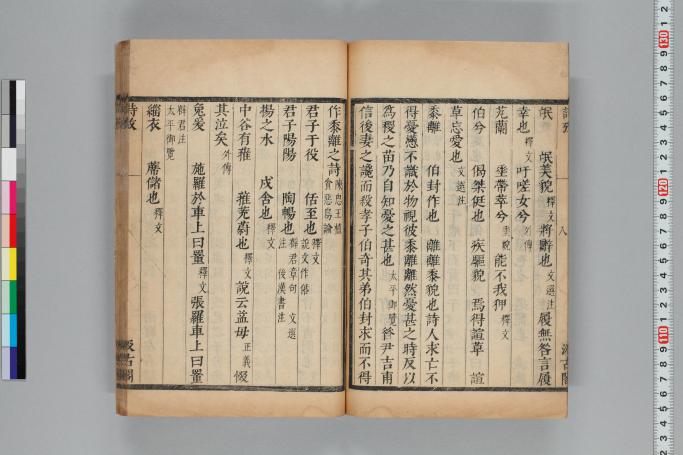 氓　氓美貌釋文　將辭也文選注　履無咎言履
幸也釋文　吁嗟女兮外傳
芄蘭　垂帶萃兮垂貌　能不我狎釋文
伯兮　偈桀侹也　疾驅貌　焉得諠草　諠
草忘憂也文選注
黍離　伯封作也　離離黍貌也詩人求亡不
得憂懣不識於物視彼黍離離然憂甚之時反以
為稷之苗乃自知憂之甚也太平御覽　昝尹吉甫
信後妻之讒而殺孝子伯奇其弟伯封求而不得
作黍離之詩陳思王植貪惡鳥論
君子于役　佸至也釋文　說文作佸
君子陽陽　陶暢也薛君章句　文選注　後漢書注
揚之水　戍舍也釋文
中谷有蓷　蓷茺蔚也釋文　說云益母正義　惙
其泣矣外傳
兔爰　施羅於車上曰罿釋文　張羅車上曰罿
薛君注　太平御覽
緇衣　蓆儲也釋文
詩攷
八
汲古閣
汲古閣